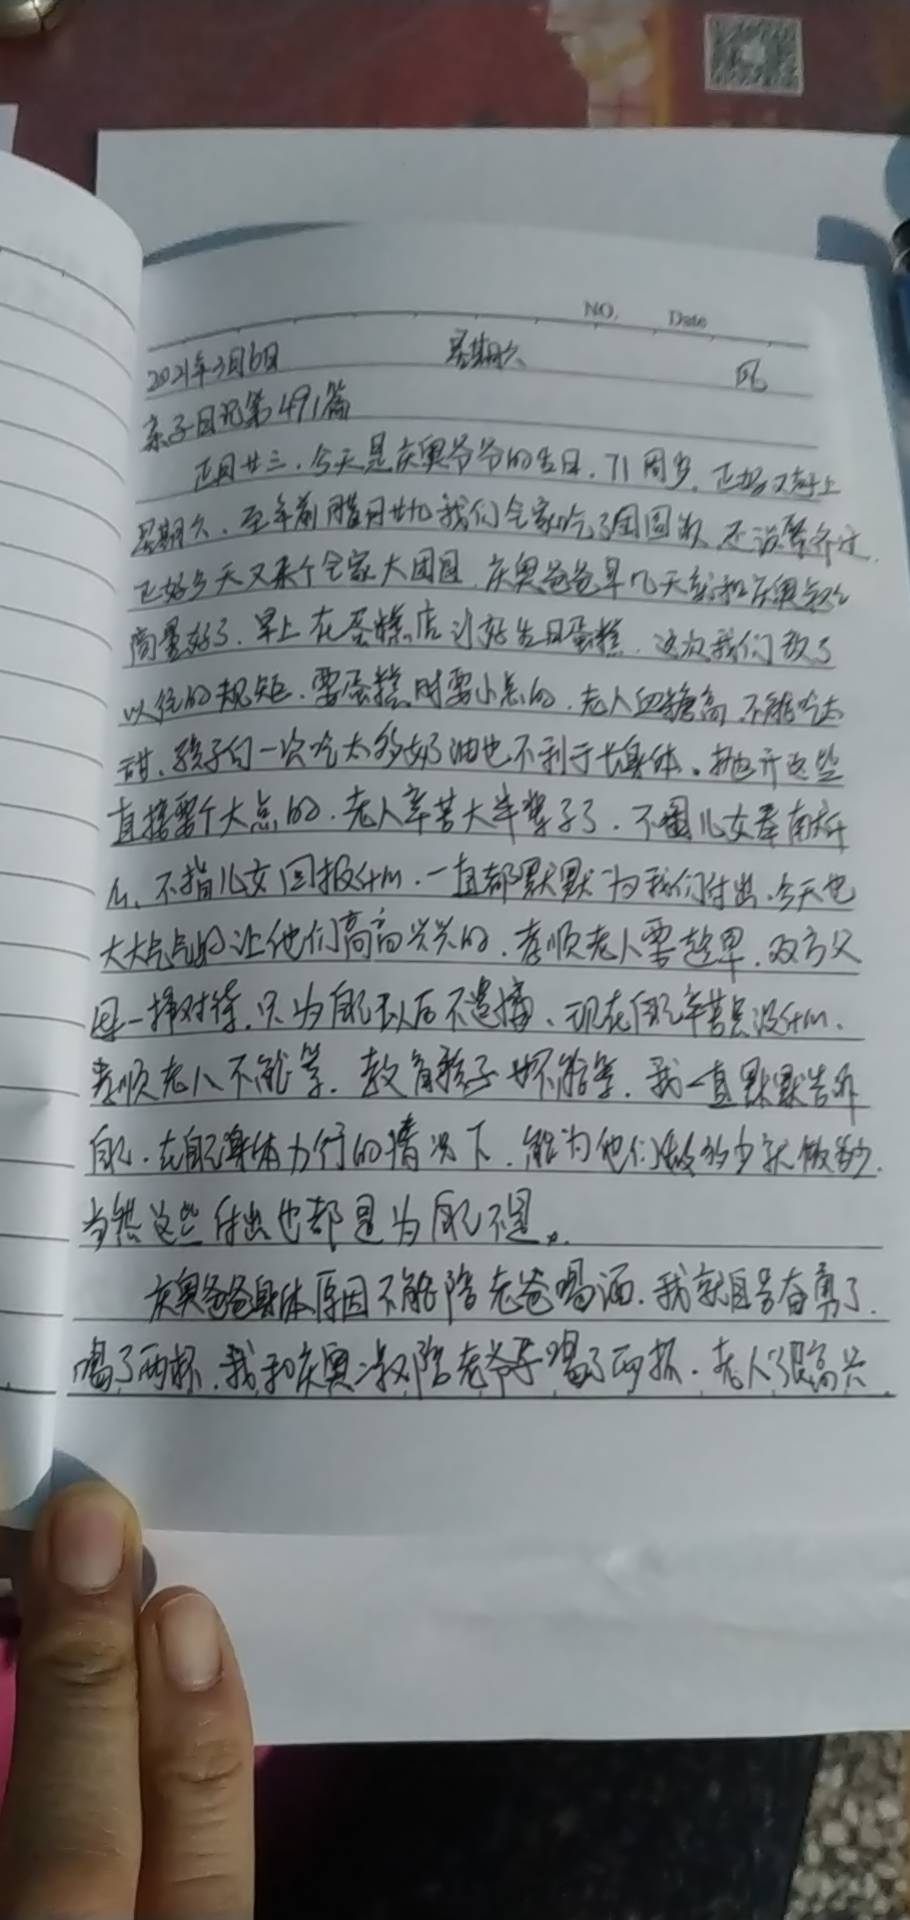 NO. Date
2021年3月6日 星期六 风
亲子日记第491篇
正月廿三,今天是庆奥爷爷的生日,71周岁,正好又赶上
星期六,至年前腊月廿九我们全家吃了团圆饭,还没聚齐过,
正好今天又来个全家大团圆,庆奥爸爸早几天就和庆奥
商量好了,早上在蛋糕店订好生日蛋糕,这次我们改了
以往的规矩,要蛋糕时要小点的,老人血糖高,不能吃太
甜,孩子们一次吃太多奶油也不利于长身体。抛开这些
直接要个大点的,老人辛苦大半辈子了,不图儿女孝
么,不指儿女回报什么,一直都默默为我们付出,今天也
大大气气的让他们高高兴兴的,孝顺老人要趁早,双方父
母一样对待,只为自己以后不遗憾,现在自己辛苦点没什么,
孝顺老人不能等,教育孩子也不能等,我一直默默告诉
自己,在自己身体力行的情况下,能为他们做多少就做多少,
当然这些付出也都是为自己不是。
庆奥爸爸身体原因不能陪老爸喝酒,我就自告奋勇了,
喝了两杯,我和庆奥叔陪老爷子喝了两杯,老人很高兴